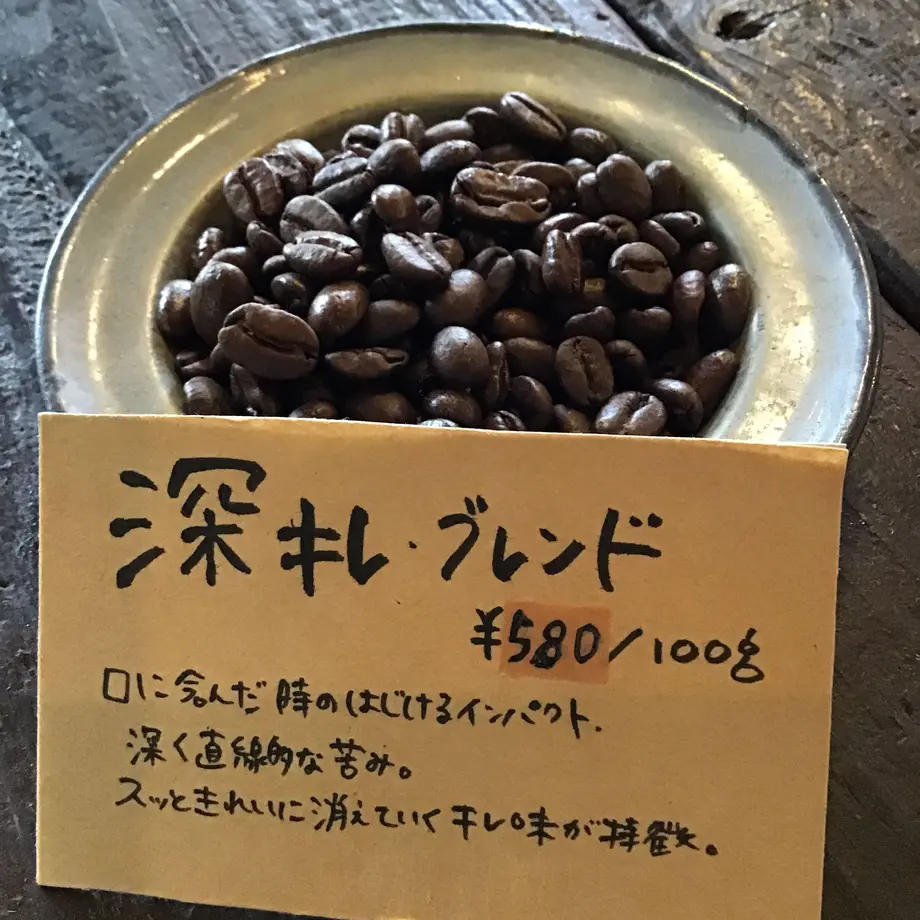 深キレ・ブレンド
¥580/100g
口に含んだ時のはじけるインパクト.
深く直線的な苦み。
スッときれいに消えていくキレ味が特徴。